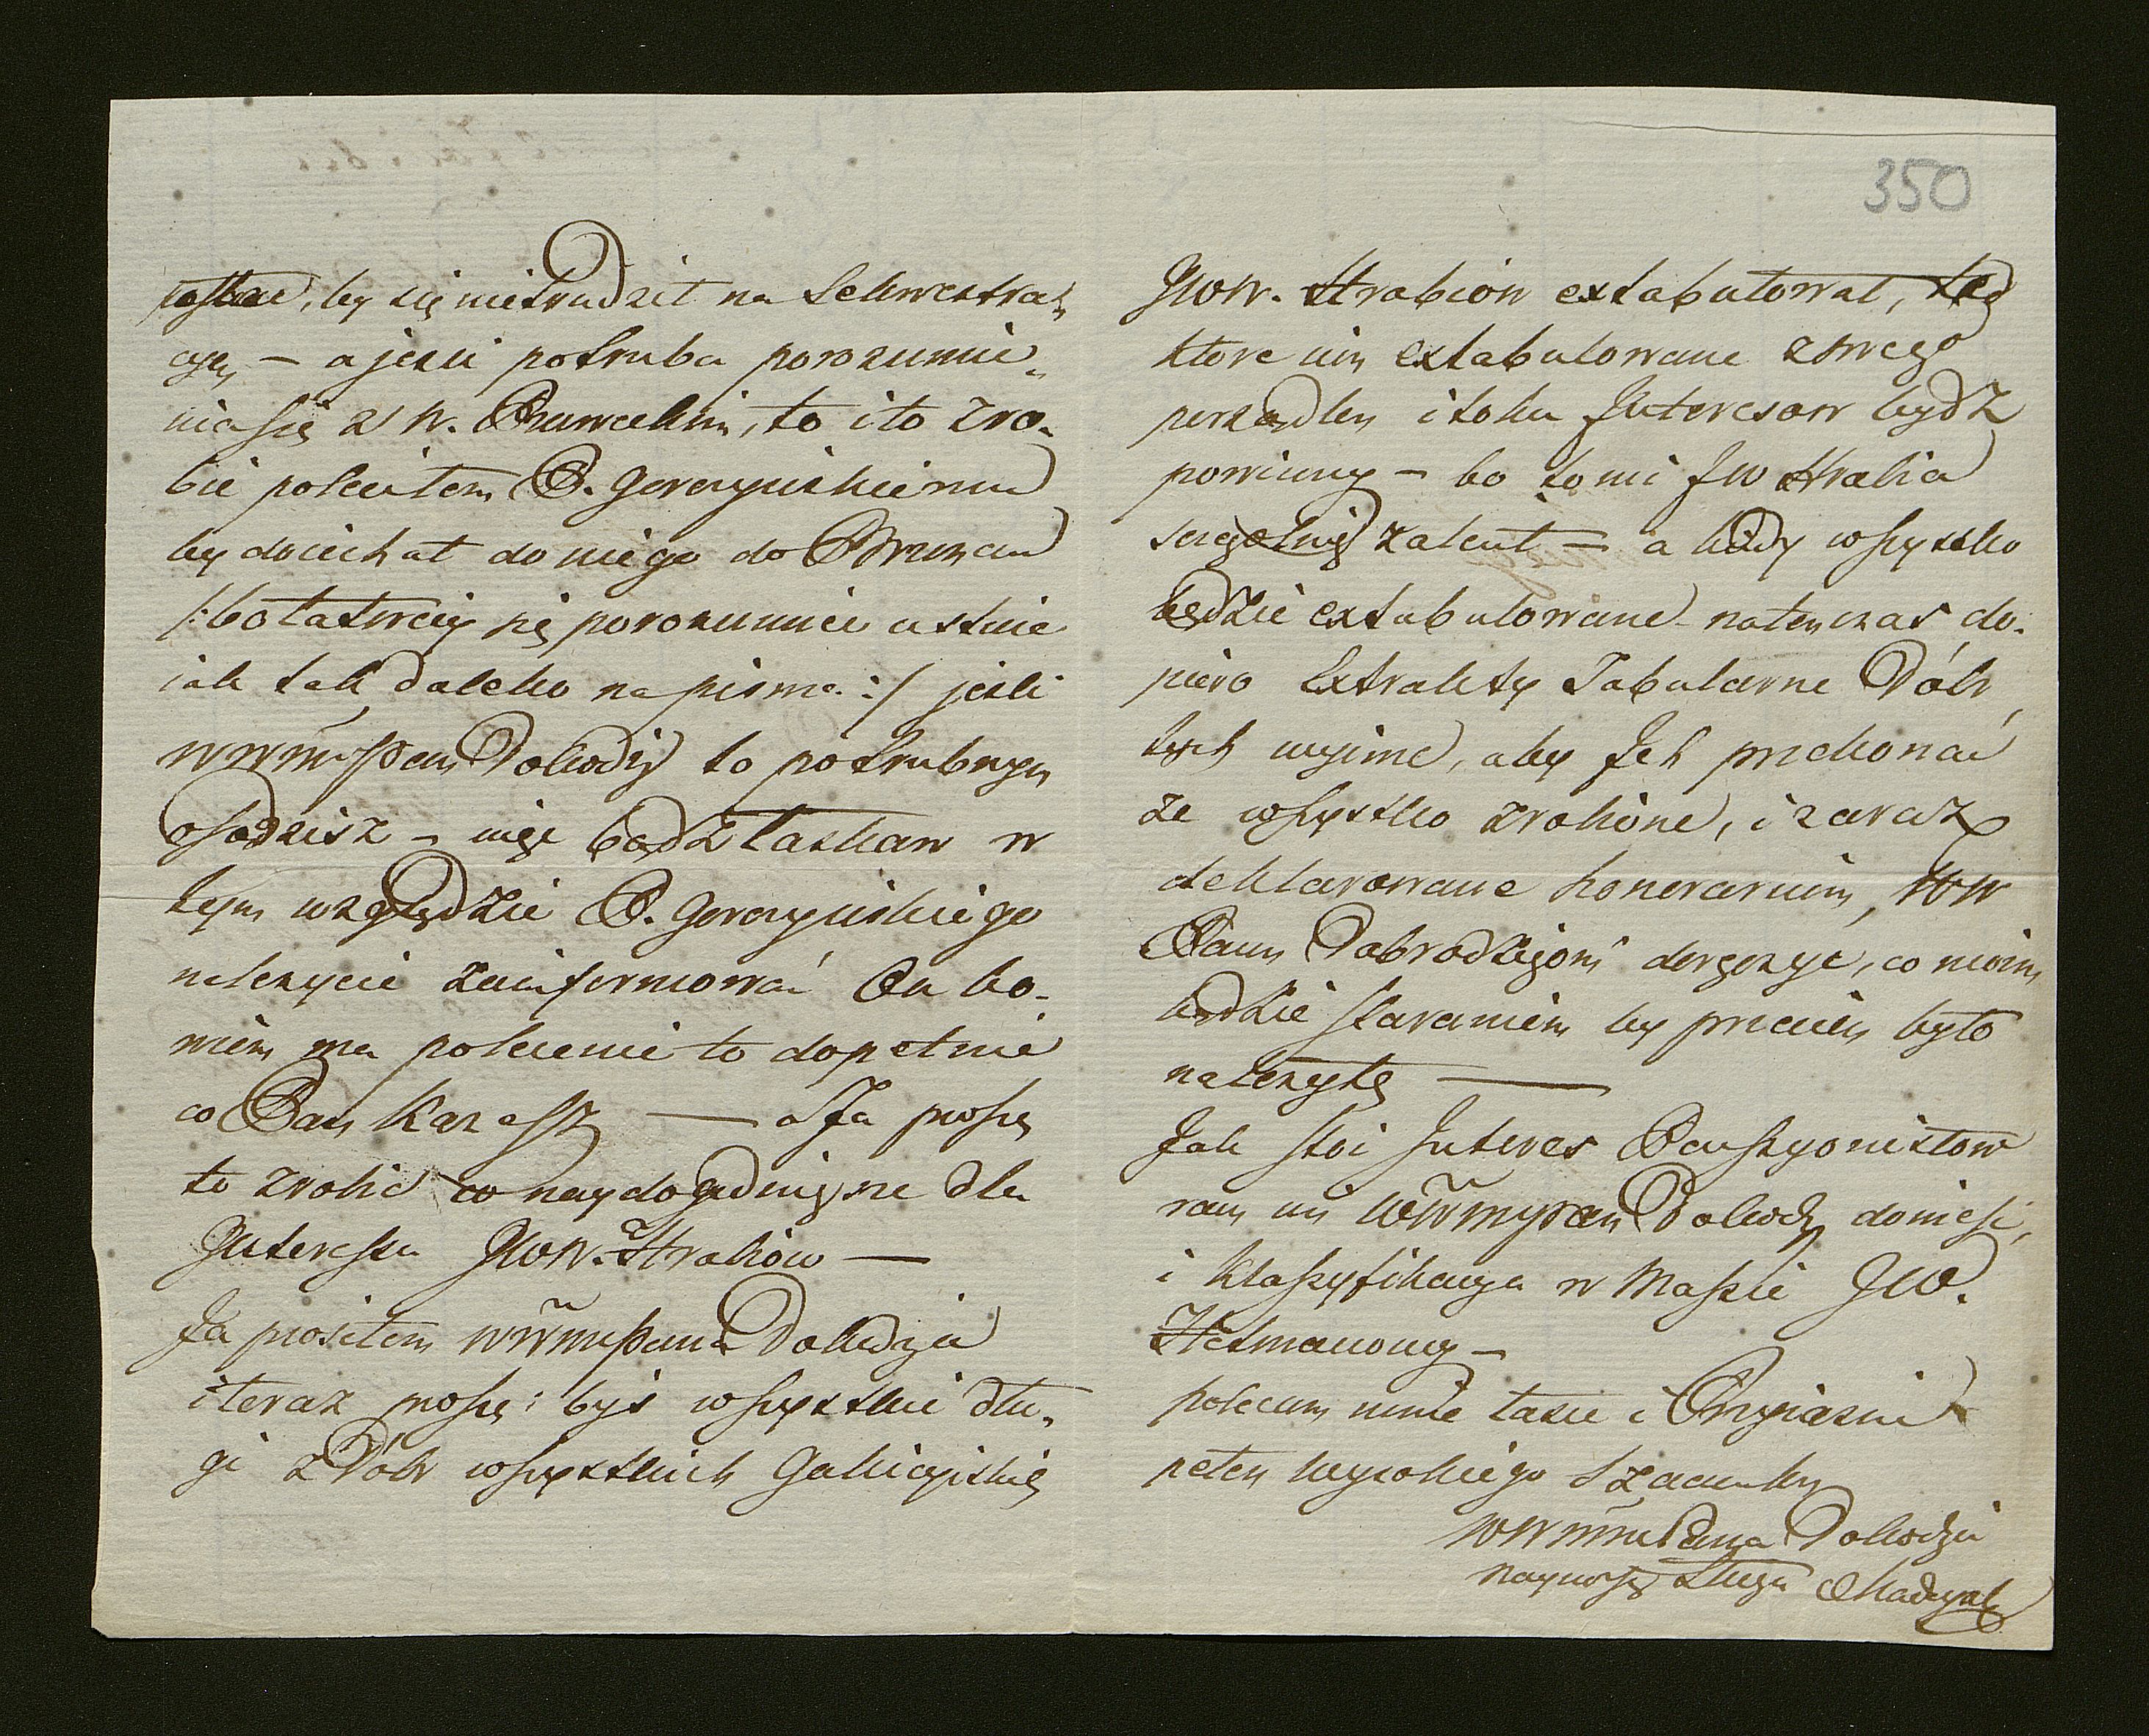 by się nietrudził na Sekwestra„
cyą, – a jeżli potrzeba porozumie„
nia się z W. to i to zro„
bić poleciłem P. Gorczyńskiemu
by doiechał do niego do Brzezan
/: bo łatwiey się porozumieć ustnie
iak tak daleko na pismo :/ jeżli
WWmPan Dobodzij to potrzebnym
osądzisz – więc bądź łaskaw w
tym względzie P. Gorczyńskiego
należycie zainformować On bo„
wiem ma polecenie to dopełnić
co Pan każesz — a Ja proszę
to zrobić co naydogodnieysze dla
Interessu JWW. Hrabiów —
Ja prosiłem WWmPana Dobodzja
i teraz proszę: byś wszystkie dłu„
gi z Dóbr wszystkich Galicyiskich
350
JWW. Hrabiow extabulował,
ktore nim extabulowane z swego
porządku i toku Interesow bydz
powinny – bo to mi JW Hrabia
zalecił – a kiedy wszystko
będzie extabulowane natenczas do„
piero Extrakty Tabularne Dóbr
tych wyimę, aby Jch przekonać
że wszystko zrobione, i zaraz
deklarowane honorarium, WW
Panu Dobrodziejowi doręczyć, co moim
będzie staraniem by przecięż było
należyte —
Jak stoi Interes Pensyonistow
racz mi WWmyPan Dobodzy donieść,
i klassyfikacya w Massie JW.
Hetmanowy –
polecam mnie łasce i Przyiazni
pełen wysokiego Szacunku
WWmmPana Dobodzja
nayniższy Sługa